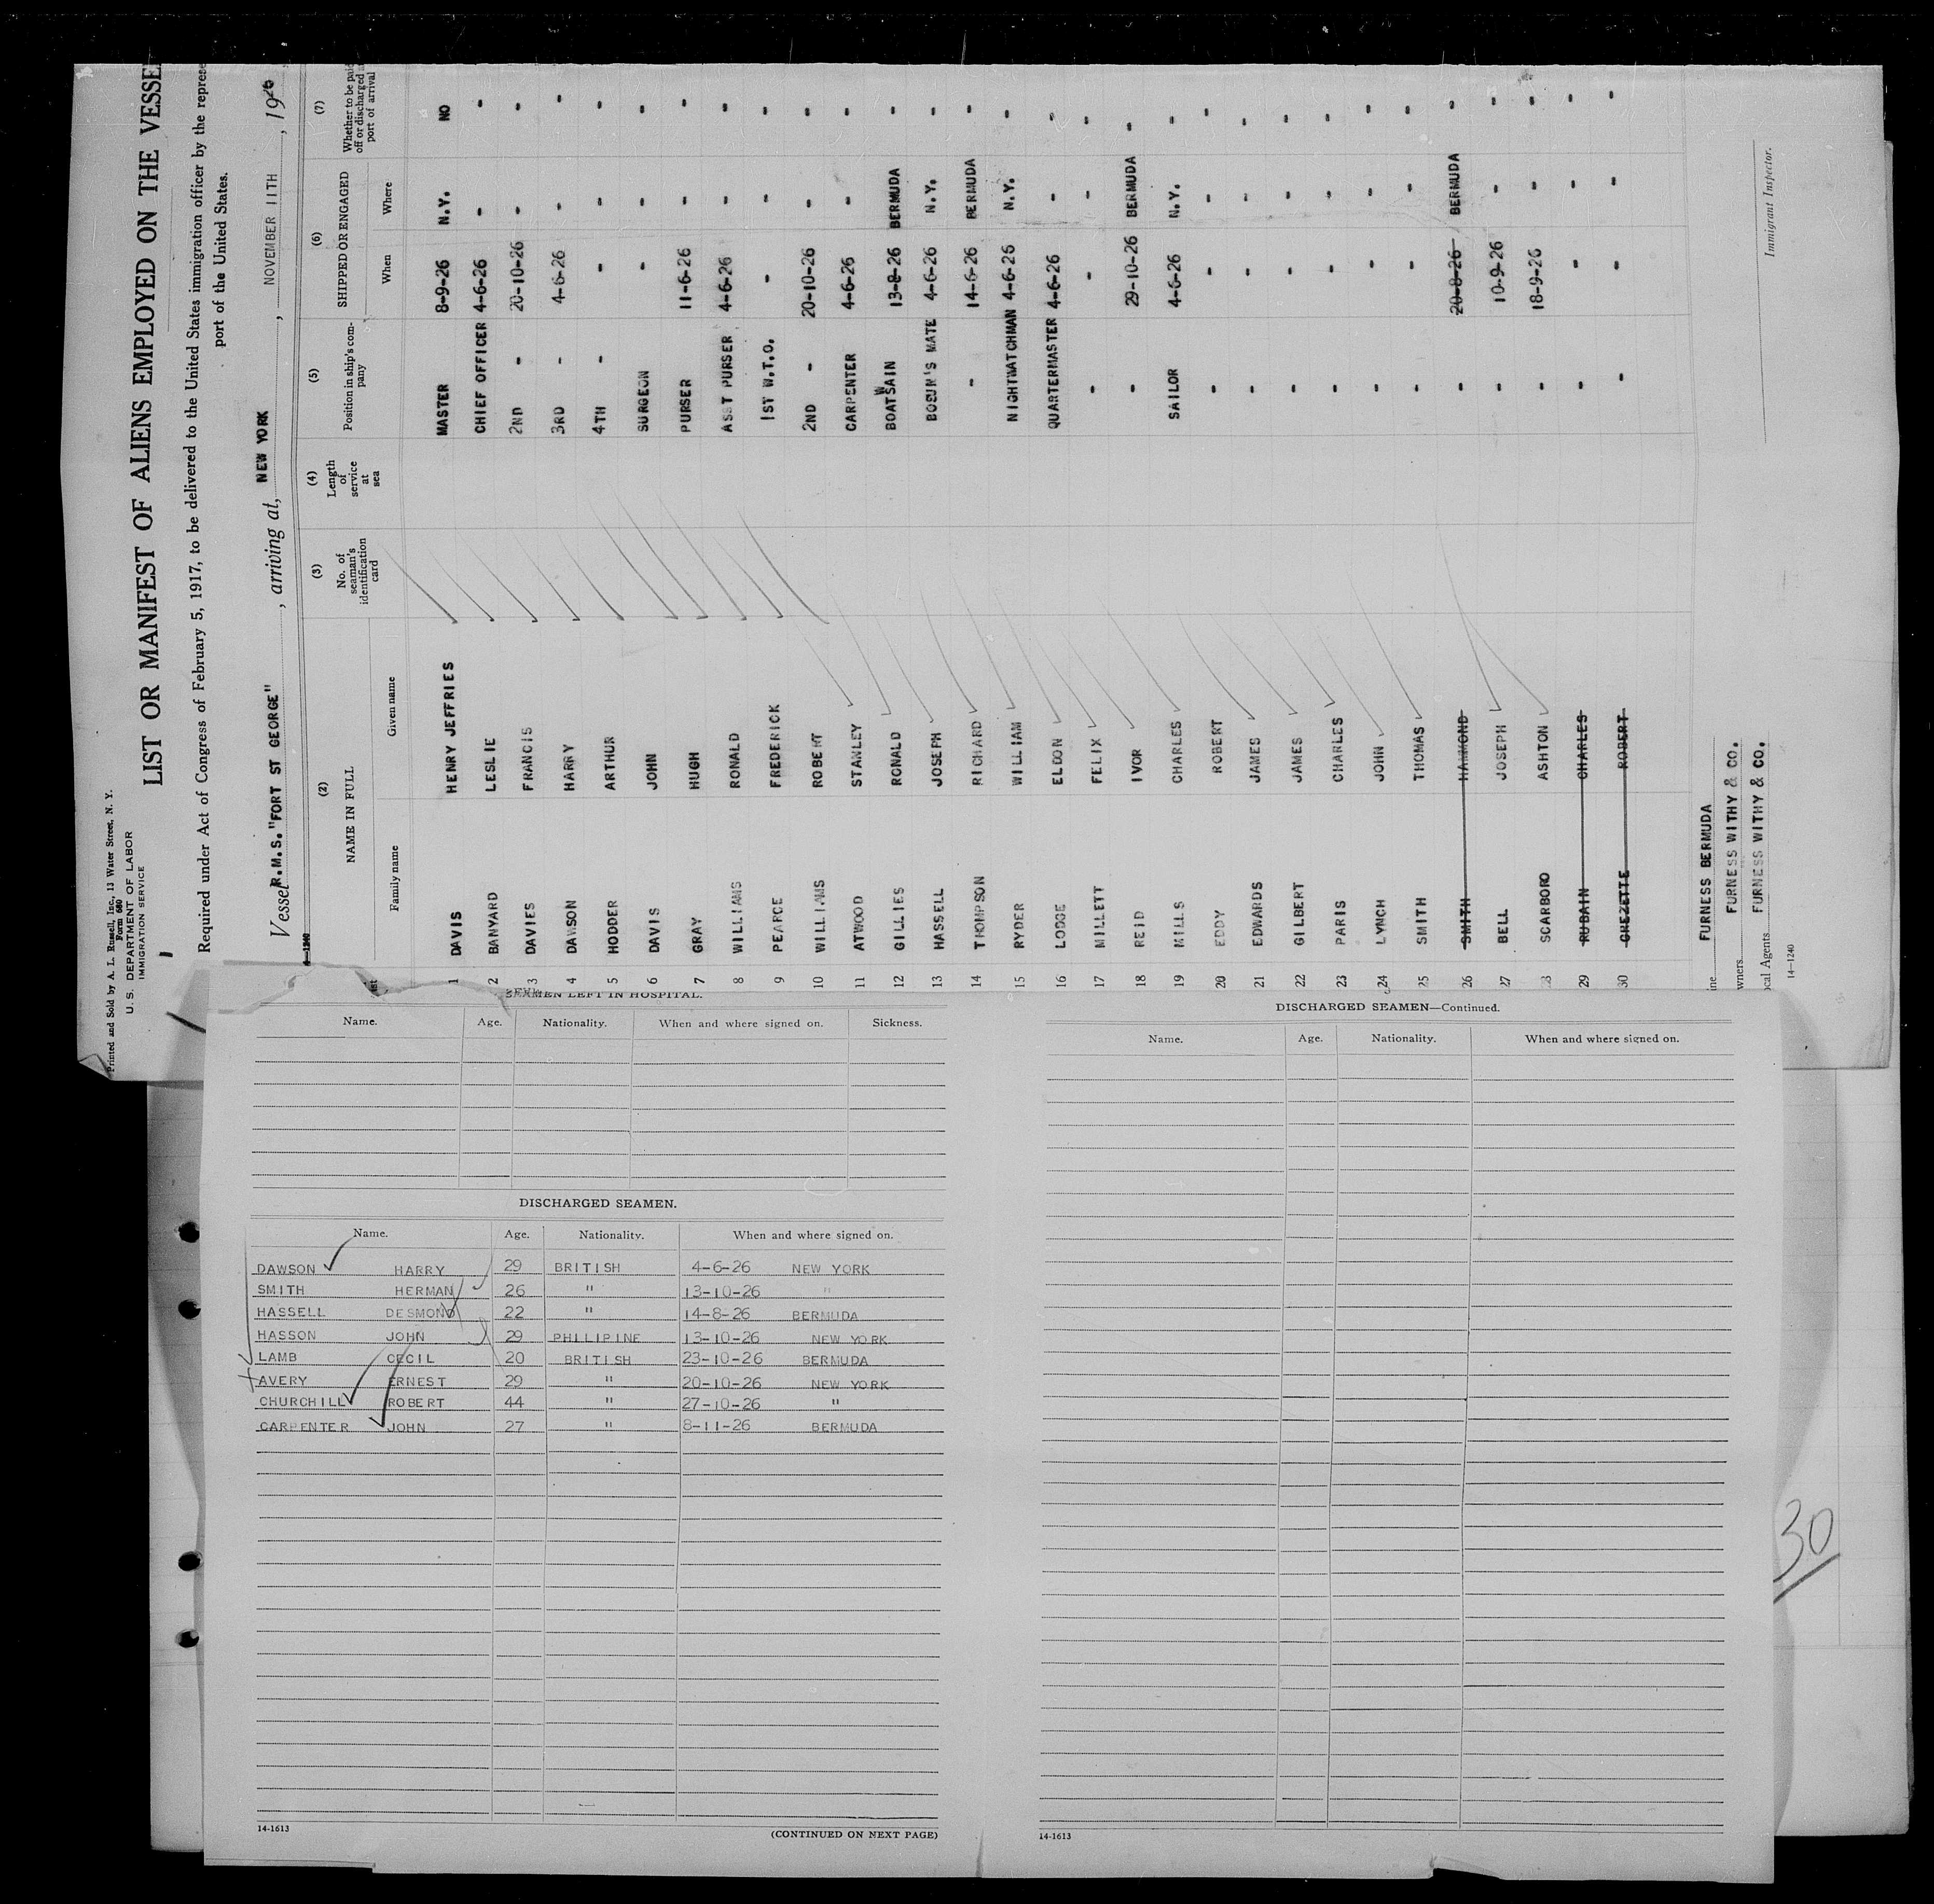 Printed and Sold by A. L. Russell, Inc., 13 Water Street, N. Y.
Form 680
U. S. DEPARTMENT OF LABOR
IMMIGRATION SERVICE
LIST OR MANIFEST OF ALIENS EMPLOYED ON THE VESSEL
Required under Act of Congress of February 5, 1917, to be delivered to the United States immigration officer by the represe
port of the United States.
Vessel R.M.S. "FORT ST GEORGE", arriving at, NEW YORK, NOVEMBER 11TH, 1926
(2) (3) (4) (5) (6) (7)
NAME IN FULL
Family name Given name
No. of seaman's identification card
Length of service at sea
Position in ship's company
SHIPPED OR ENGAGED
When Where
Whether to be paid off or discharged at port of arrival
1 DAVIS HENRY JEFFRIES MASTER 8-9-26 N.Y. NO
2 BANYARD LESLIE CHIEF OFFICER 4-6-26 - -
3 DAVIES FRANCIS 2ND - 20-10-26 - -
4 DAWSON HARRY 3RD - 4-6-26 - -
5 HODDER ARTHUR 4TH - - - -
6 DAVIS JOHN SURGEON - - -
7 GRAY HUGH PURSER 11-6-26 - -
8 WILLIAMS RONALD ASST PURSER 4-6-26 - -
9 PEARCE FREDERICK 1ST W.T.O. - - -
10 WILLIAMS ROBERT 2ND - 20-10-26 - -
11 ATWOOD STANLEY CARPENTER 4-6-26 - -
12 GILLIES RONALD BOATSWAIN 13-8-26 BERMUDA -
13 HASSELL JOSEPH BOSUN'S MATE 4-6-26 N.Y. -
14 THOMPSON RICHARD - 14-6-26 BERMUDA -
15 RYDER WILLIAM NIGHTWATCHMAN 4-6-26 N.Y. -
16 LODGE ELDON QUARTERMASTER 4-6-26 - -
17 MILLETT FELIX - - - -
18 REID IVOR - 29-10-26 BERMUDA -
19 MILLS CHARLES SAILOR 4-6-26 N.Y. -
20 EDDY ROBERT - - - -
21 EDWARDS JAMES - - - -
22 GILBERT JAMES - - - -
23 PARIS CHARLES - - - -
24 LYNCH JOHN - - - -
25 SMITH THOMAS - - - -
26 SMITH HAMMOND - 20-8-26 BERMUDA -
27 BELL JOSEPH - 10-9-26 - -
28 SCARBORO ASHTON - 18-9-26 - -
29 RUBAIN CHARLES - - - -
30 GREZETTE ROBERT - - - -
FURNESS BERMUDA
FURNESS WITHY & CO.
Local Agents FURNESS WITHY & CO.
14-1240
Immigrant Inspector.
SEAMEN LEFT IN HOSPITAL.
Name. Age. Nationality. When and where signed on. Sickness.
DISCHARGED SEAMEN.
Name. Age. Nationality. When and where signed on.
DAWSON HARRY 29 BRITISH 4-6-26 NEW YORK
SMITH HERMAN 26 " 13-10-26 "
HASSELL DESMOND 22 " 14-8-26 BERMUDA
HASSON JOHN 29 PHILIPINE 13-10-26 NEW YORK
LAMB CECIL 20 BRITISH 23-10-26 BERMUDA
AVERY ERNEST 29 " 20-10-26 NEW YORK
CHURCHILL ROBERT 44 " 27-10-26 "
CARPENTER JOHN 27 " 8-11-26 BERMUDA
14-1613
(CONTINUED ON NEXT PAGE)
DISCHARGED SEAMEN—Continued.
Name. Age. Nationality. When and where signed on.
14-1613
30